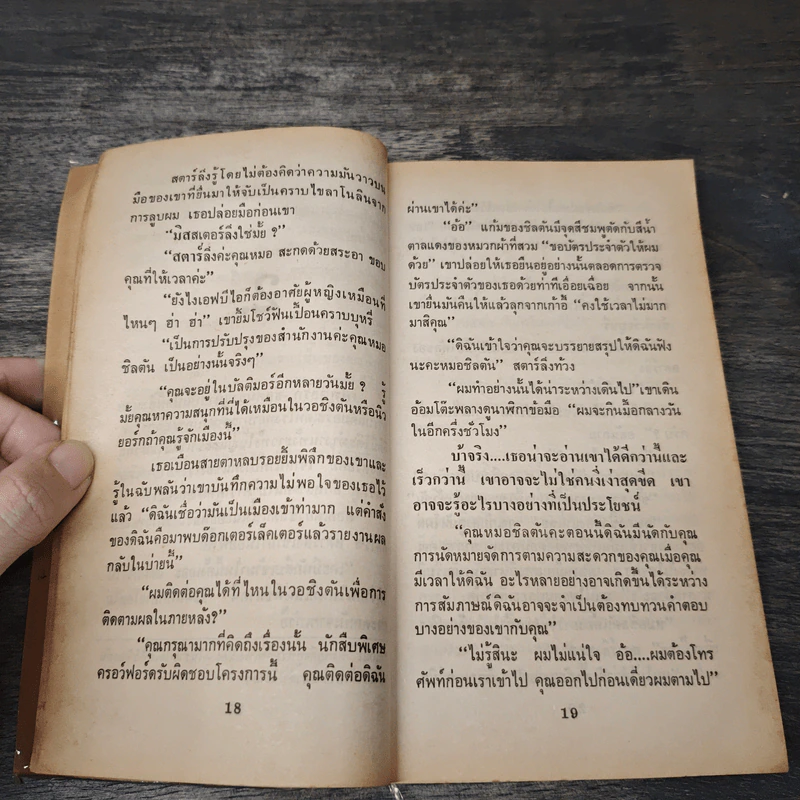 สตาร์ลิ่งรู้โดยไม่ต้องคิดว่าความมันวาวบน
มือของเขาที่ยื่นมาให้จับเป็นคราบไขลาโนลินจาก
การลูบผม เธอปล่อยมือก่อนเขา
“มิสสเตอร์ลิงใช่มั้ย ?
“สตาร์ลิ่งค่ะคุณหมอ สะกดด้วยสระอา ขอบ
คุณที่ให้เวลาค่ะ”
“ยังไงเอฟบีไอก็ต้องอาศัยผู้หญิงเหมือนที่
ไหนๆ ฮ่า ฮ่า” เขายิ้มโชว์ฟันเปื้อนคราบบุหรี่
“เป็นการปรับปรุงของสำนักงานค่ะคุณหมอ
ชิลตัน เป็นอย่างนั้นจริงๆ”
“คุณจะอยู่ในบัลติมอร์อีกหลายวันมั้ย ? รู้
มั้ยคุณหาความสนุกที่นี่ได้เหมือนในวอชิงตันหรือนิว
ยอร์กถ้าคุณรู้จักเมืองนี้”
เธอเบือนสายตาหลบรอยยิ้มพิลึกของเขาและ
รู้ในฉับพลันว่าเขาบันทึกความไม่พอใจของเธอไว้
แล้ว “ดิฉันเชื่อว่ามันเป็นเมืองเข้าท่ามาก แต่คำสั่ง
ของดิฉันคือมาพบด๊อกเตอร์เล็คเตอร์แล้วรายงานผล
กลับในบ่ายนี้”
“ผมติดต่อคุณได้ที่ไหนในวอชิงตันเพื่อการ
ติดตามผลในภายหลัง?”
“คุณกรุณามากที่คิดถึงเรื่องนั้น นักสืบพิเศษ
ครอว์ฟอร์ดรับผิดชอบโครงการนี้ คุณติดต่อดิฉัน
18
ผ่านเขาได้ค่ะ”
“อ้อ” แก้มของชิลตันมีจุดสีชมพูตัดกับสีน้ำ
ตาลแดงของหมวกผ้าที่สวม “ขอบัตรประจำตัวให้ผม
ด้วย” เขาปล่อยให้เธอยืนอยู่อย่างนั้นตลอดการตรวจ
บัตรประจำตัวของเธอด้วยท่าที่เอื่อยเฉื่อย จากนั้น
เขายื่นมันคืนให้แล้วลุกจากเก้าอี้ “คงใช้เวลาไม่มาก
มาสิคุณ”
“ดิฉันเข้าใจว่าคุณจะบรรยายสรุปให้ดิฉันฟัง
นะคะหมอชิลตัน” สตาร์ลิ่งท้วง
“ผมทำอย่างนั้นได้น่าระหว่างเดินไป”เขาเดิน
อ้อมโต๊ะพลางดูนาฬิกาข้อมือ “ผมจะกินมื้อกลางวัน
ในอีกครึ่งชั่วโมง”
บ้าจริง....เธอน่าจะอ่านเขาได้ดีกว่านี้และ
เร็วกว่านี้ เขาอาจจะไม่ใช่คนงี่เง่าสุดขีด เขา
อาจจะรู้อะไรบางอย่างที่เป็นประโยชน์
“คุณหมอชิลตันคะตอนนี้ดิฉันมีนัดกับคุณ
การนัดหมายจัดการตามความสะดวกของคุณเมื่อคุณ
มีเวลาให้ดิฉัน อะไรหลายอย่างอาจเกิดขึ้นได้ระหว่าง
การสัมภาษณ์ดิฉันอาจจะจำเป็นต้องทบทวนคำตอบ
บางอย่างของเขากับคุณ”
“ไม่รู้สินะ ผมไม่แน่ใจ อ้อ....ผมต้องโทร
ศัพท์ก่อนเราเข้าไป คุณออกไปก่อนเดี๋ยวผมตามไป”
19